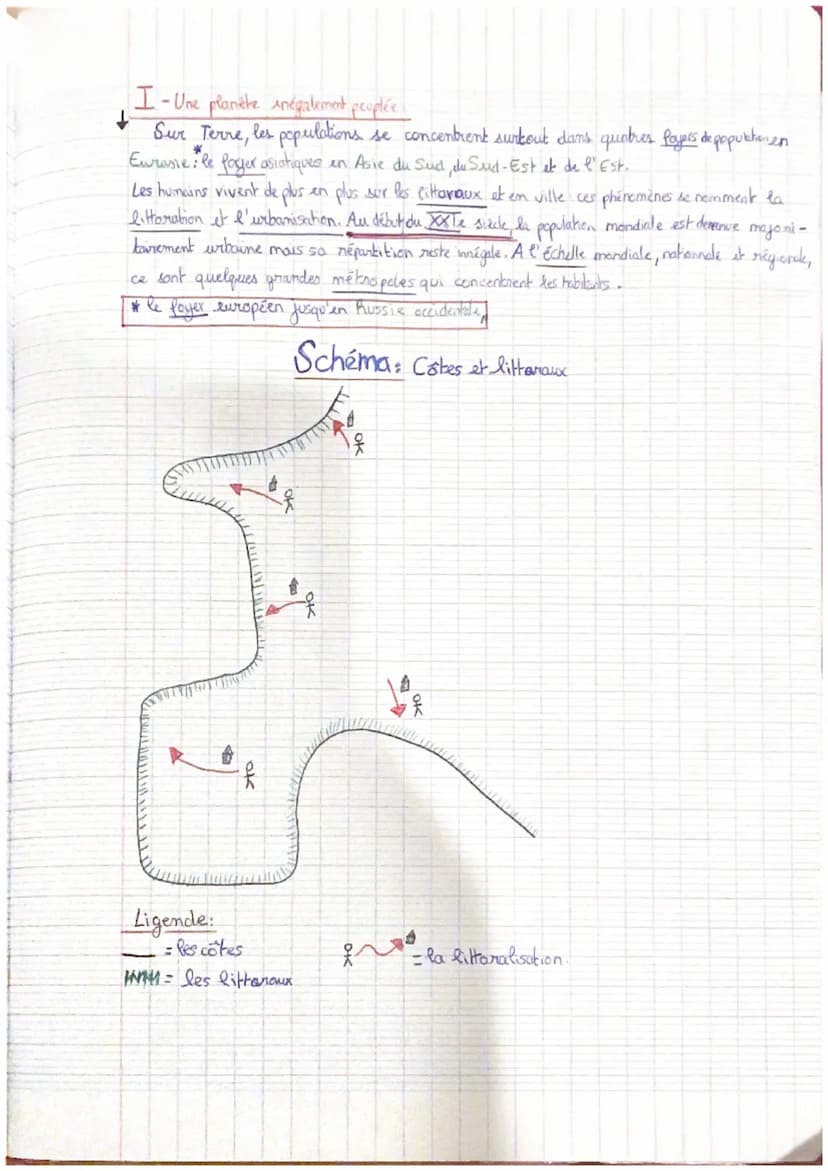 I - Une planète inégalement peuplée
Sur Terre, les populations se concentrent surtout dans quatres foyers de population en
Eurasie : * le foyer asiatiques en Asie du Sud, du Sud-Est et de l'Est.
Les humains vivent de plus en plus sur les littoraux et en ville : ces phénomènes se nomment la
littoration et l'urbanisation. Au début du XXIe siècle, la population mondiale est devenue majori-
tairement urbaine mais sa répartition reste innégale. A l'échelle mondiale, nationale et régionale,
ce sont quelques grandes métropoles qui concentrent les habitants.
* le foyer européen jusqu'en Russie occidentale,
Schéma : Côtes et littoraux
Ligende :
= les côtes
= les littoraux
= la littoralisation.